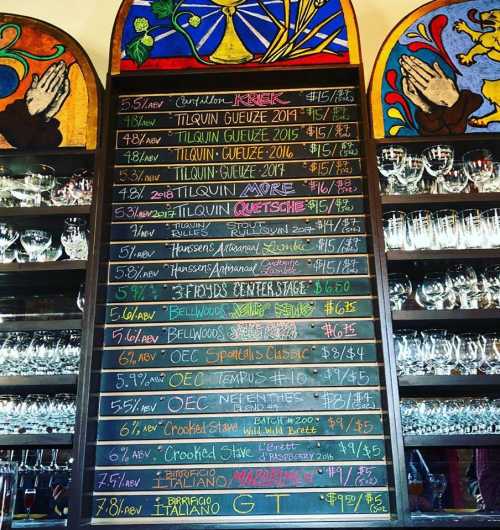 5.5% ABV Cantillon KRIEK $15/$7 (5oz)
4.8% ABV TILQUIN GUEUZE 2014 $15/$
4.8% ABV TILQUIN GUEUZE 2015 $15/$
4.8% ABV TILQUIN • GUEUZE • 2016 $15/$
5.3% ABV TILQUIN • GUEUZE • 2017 $15/$7
4.8% 2018 TILQUIN MÛRE $16/$8
5.3% ABV 2017 TILQUIN QUETSCHE $15/$7
% ABV TILQUIN RULLES 2017 STOUT RULLQUIN 2017 $14/$7
5% ABV Hanssens Artisanaal Lambic $15/$7
5.8% ABV Hanssens Artisanaal Lambic $15/$7
5.9% ABV 3 FLOYDS CENTER STAGE $6.50
5.6% ABV BELLWOODS $6.75
5.6% ABV BELLWOODS $6.75
6% ABV OEC Spontalis Classic $8/$4
5.9% ABV OEC TEMPUS #10 $9/$5
5.5% ABV OEC NEPENTHES BLEND $8/$4
6% ABV Crooked Stave BATCH #200 Wild Wild Brett $9/$5
6% ABV Crooked Stave L'Brett RASPBERRY 2016 $9/$5
7.5% ABV BIRRIFICIO ITALIANO $9/$5 (5oz)
7.8% ABV BIRRIFICIO ITALIANO G T $9.50/$5 (5oz)